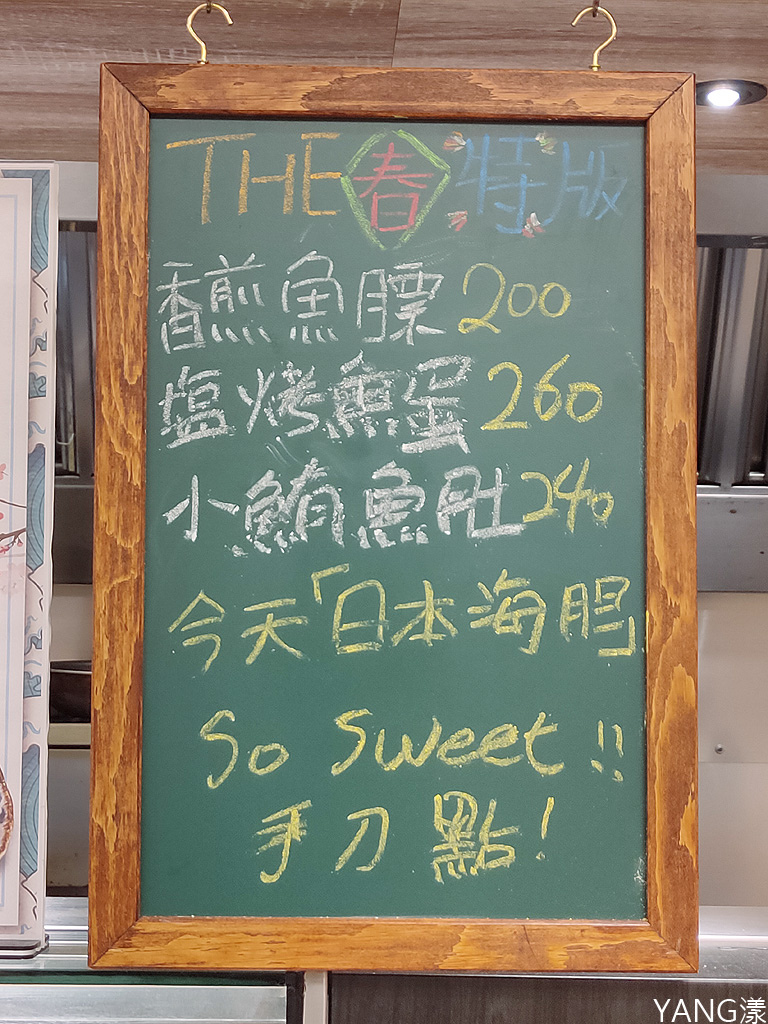 THE春特版
香煎魚膘200
塩烤魚蛋260
小鮪魚肚240
今天「日本海胆」
So Sweet!!
手刀點!
YANG漾